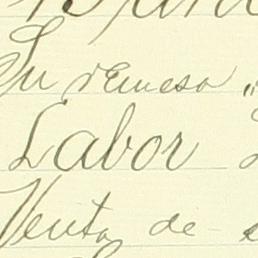 Su remesa "
Labor
Venta de